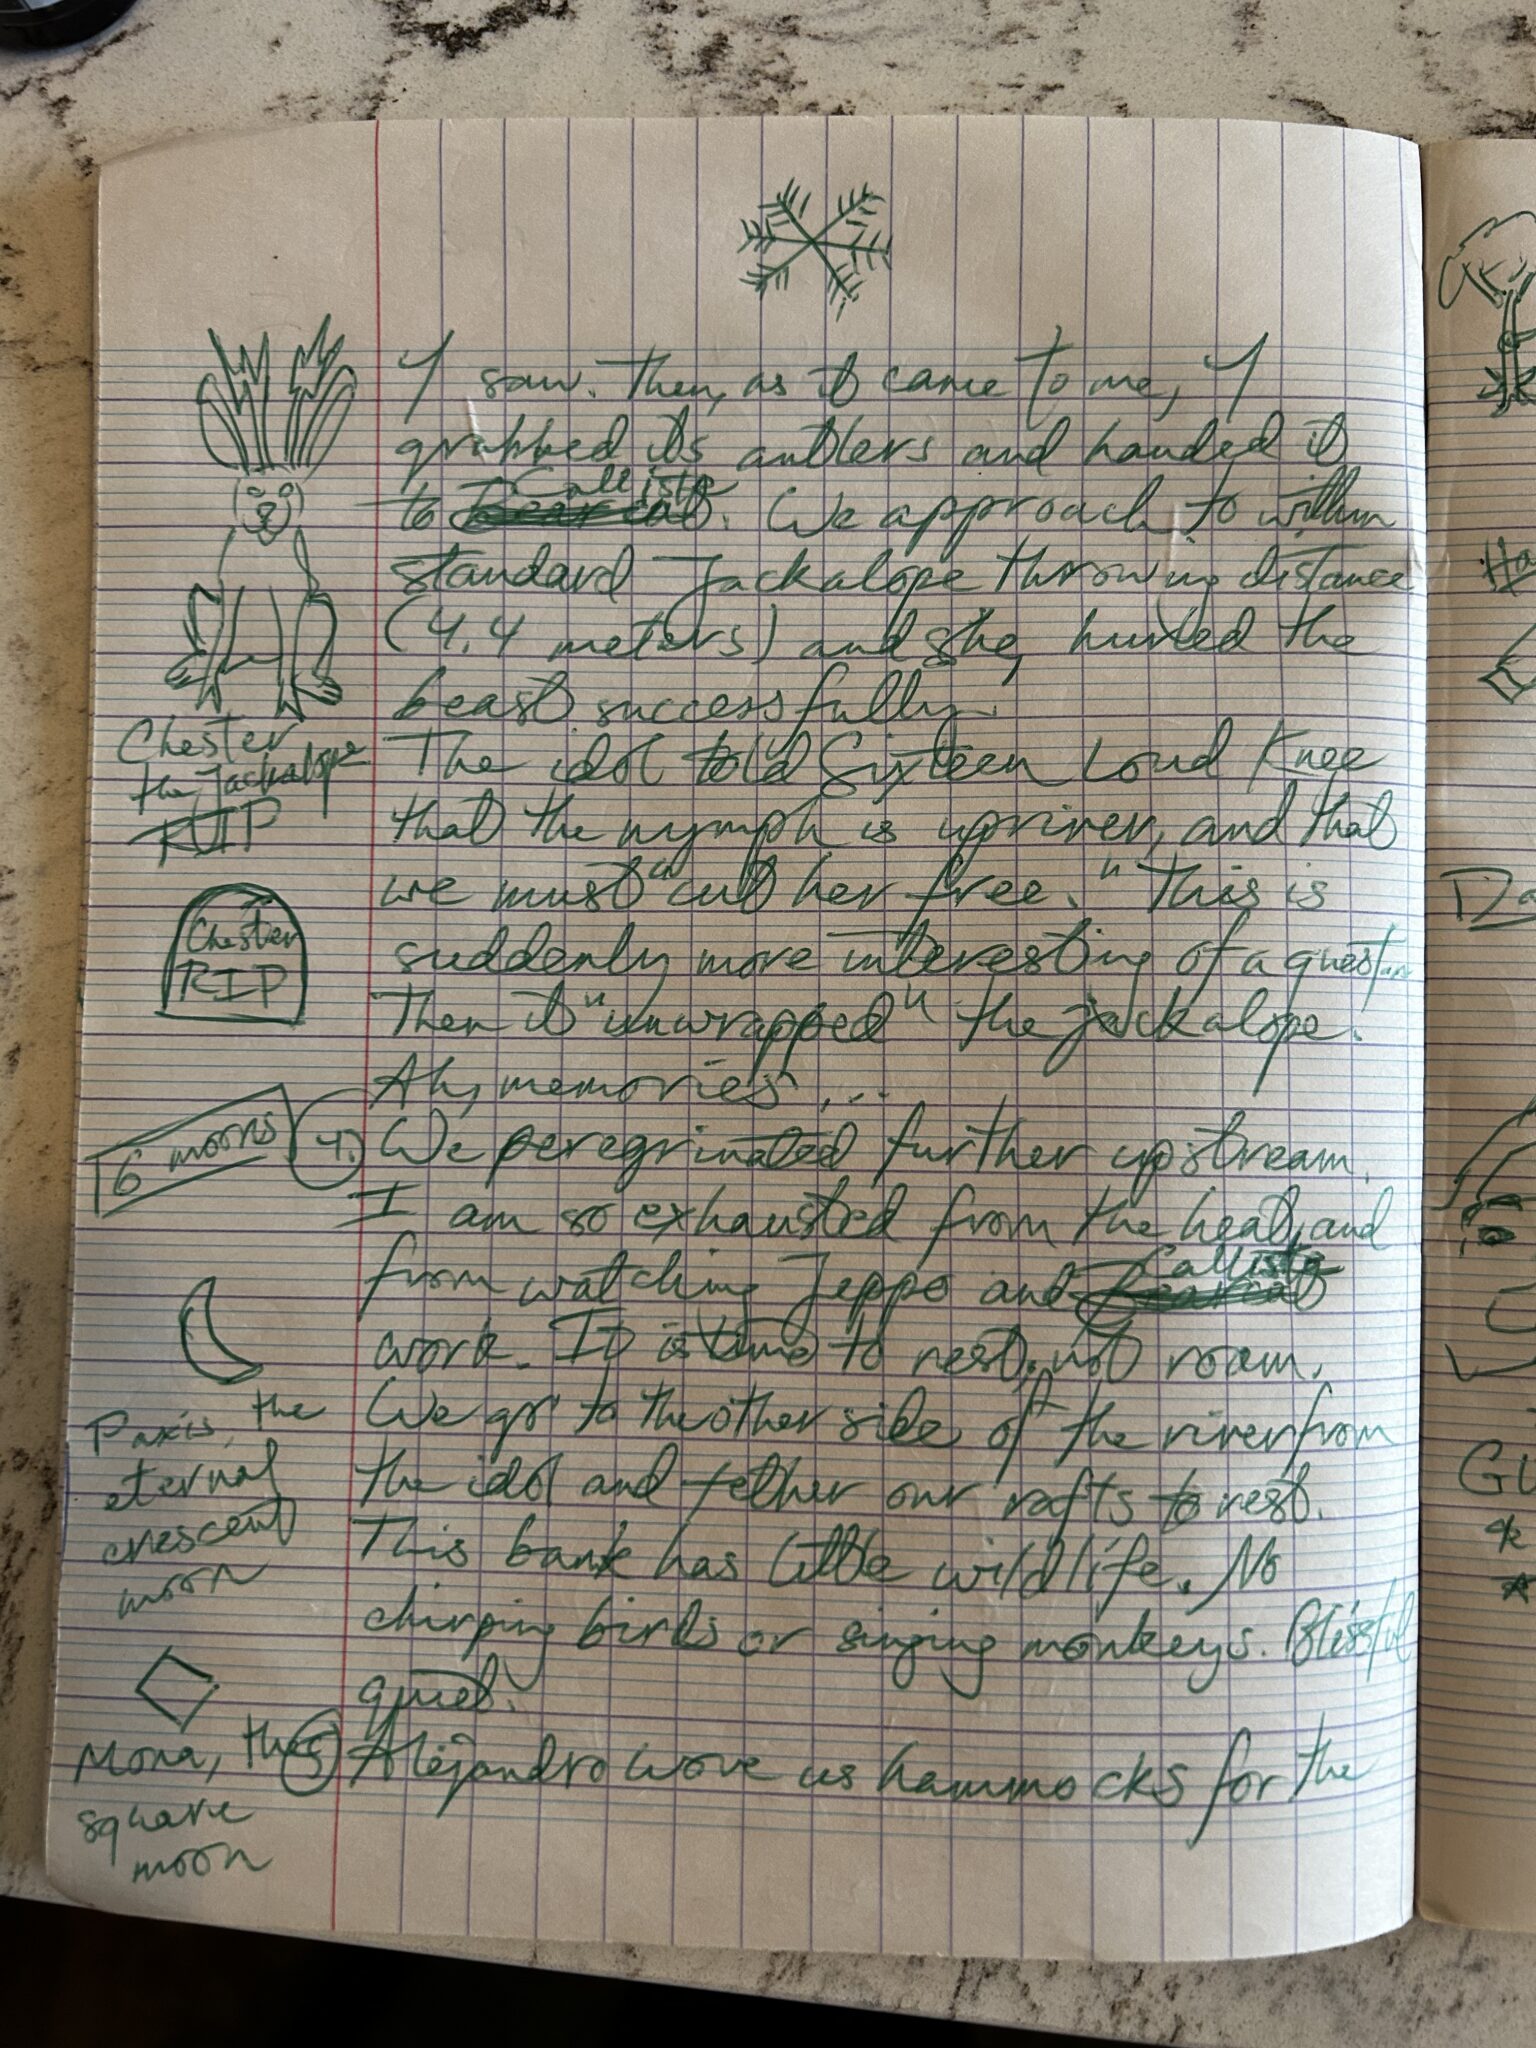 I saw. Then, as it came to me, I
grabbed its antlers and handed it
to Callista. We approach to within
standard Jackalope throwing distance
(4.4 meters) and she hurled the
beast successfully.
The idol told Sixteen Loud Knee
that the nymph is upriver, and that
we must "cut her free." This is
suddenly more interesting of a quest.
Then it "unwrapped" the jackalope.
Ah, memories...
4. We peregrinated further upstream.
I am so exhausted from the heat, and
from watching Jeppo and Callista
work. It is time to rest, not roam.
We go to the other side of the river from
the idol and tether our rafts to rest.
This bank has little wildlife. No
chirping birds or singing monkeys. Blissful
quiet.
5 Alejandro wove us hammocks for the
Chester
the Jackalope
RIP
Chester
RIP
6 moons
Paxis, the
eternal
crescent
moon
Mona, the
square
moon
Ha
Da
GU